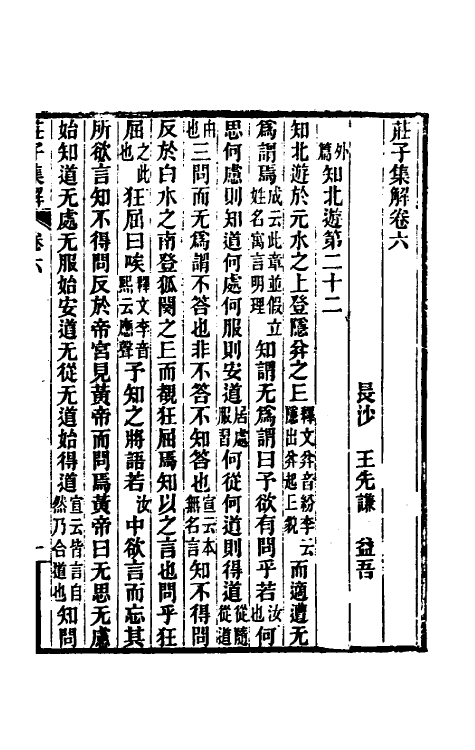 莊子集解卷六
長沙　王先謙　益吾
外篇知北遊第二十二
知北遊於元水之上登隱弅之丘釋文弅音紛李云隱出弅起丘貌而適遭无
為謂焉成云此章並假立姓名寓言明理知謂无為謂曰予欲有問乎若汝也何
思何慮則知道何處何服則安道居處服習何從何道則得道從隨道
由也三問而无為謂不答也非不答不知答也宣云本無名言知不得問
反於白水之南登狐闋之丘而覩狂屈焉知以之言也問乎狂
屈之此也狂屈曰唉釋文李音熙云應聲予知之將語若汝中欲言而忘其
所欲言知不得問反於帝宮見黃帝而問焉黃帝曰无思无慮
始知道无處无服始安道无從无道始得道宣云皆言自然乃合道也知問
莊子集解　卷六　一